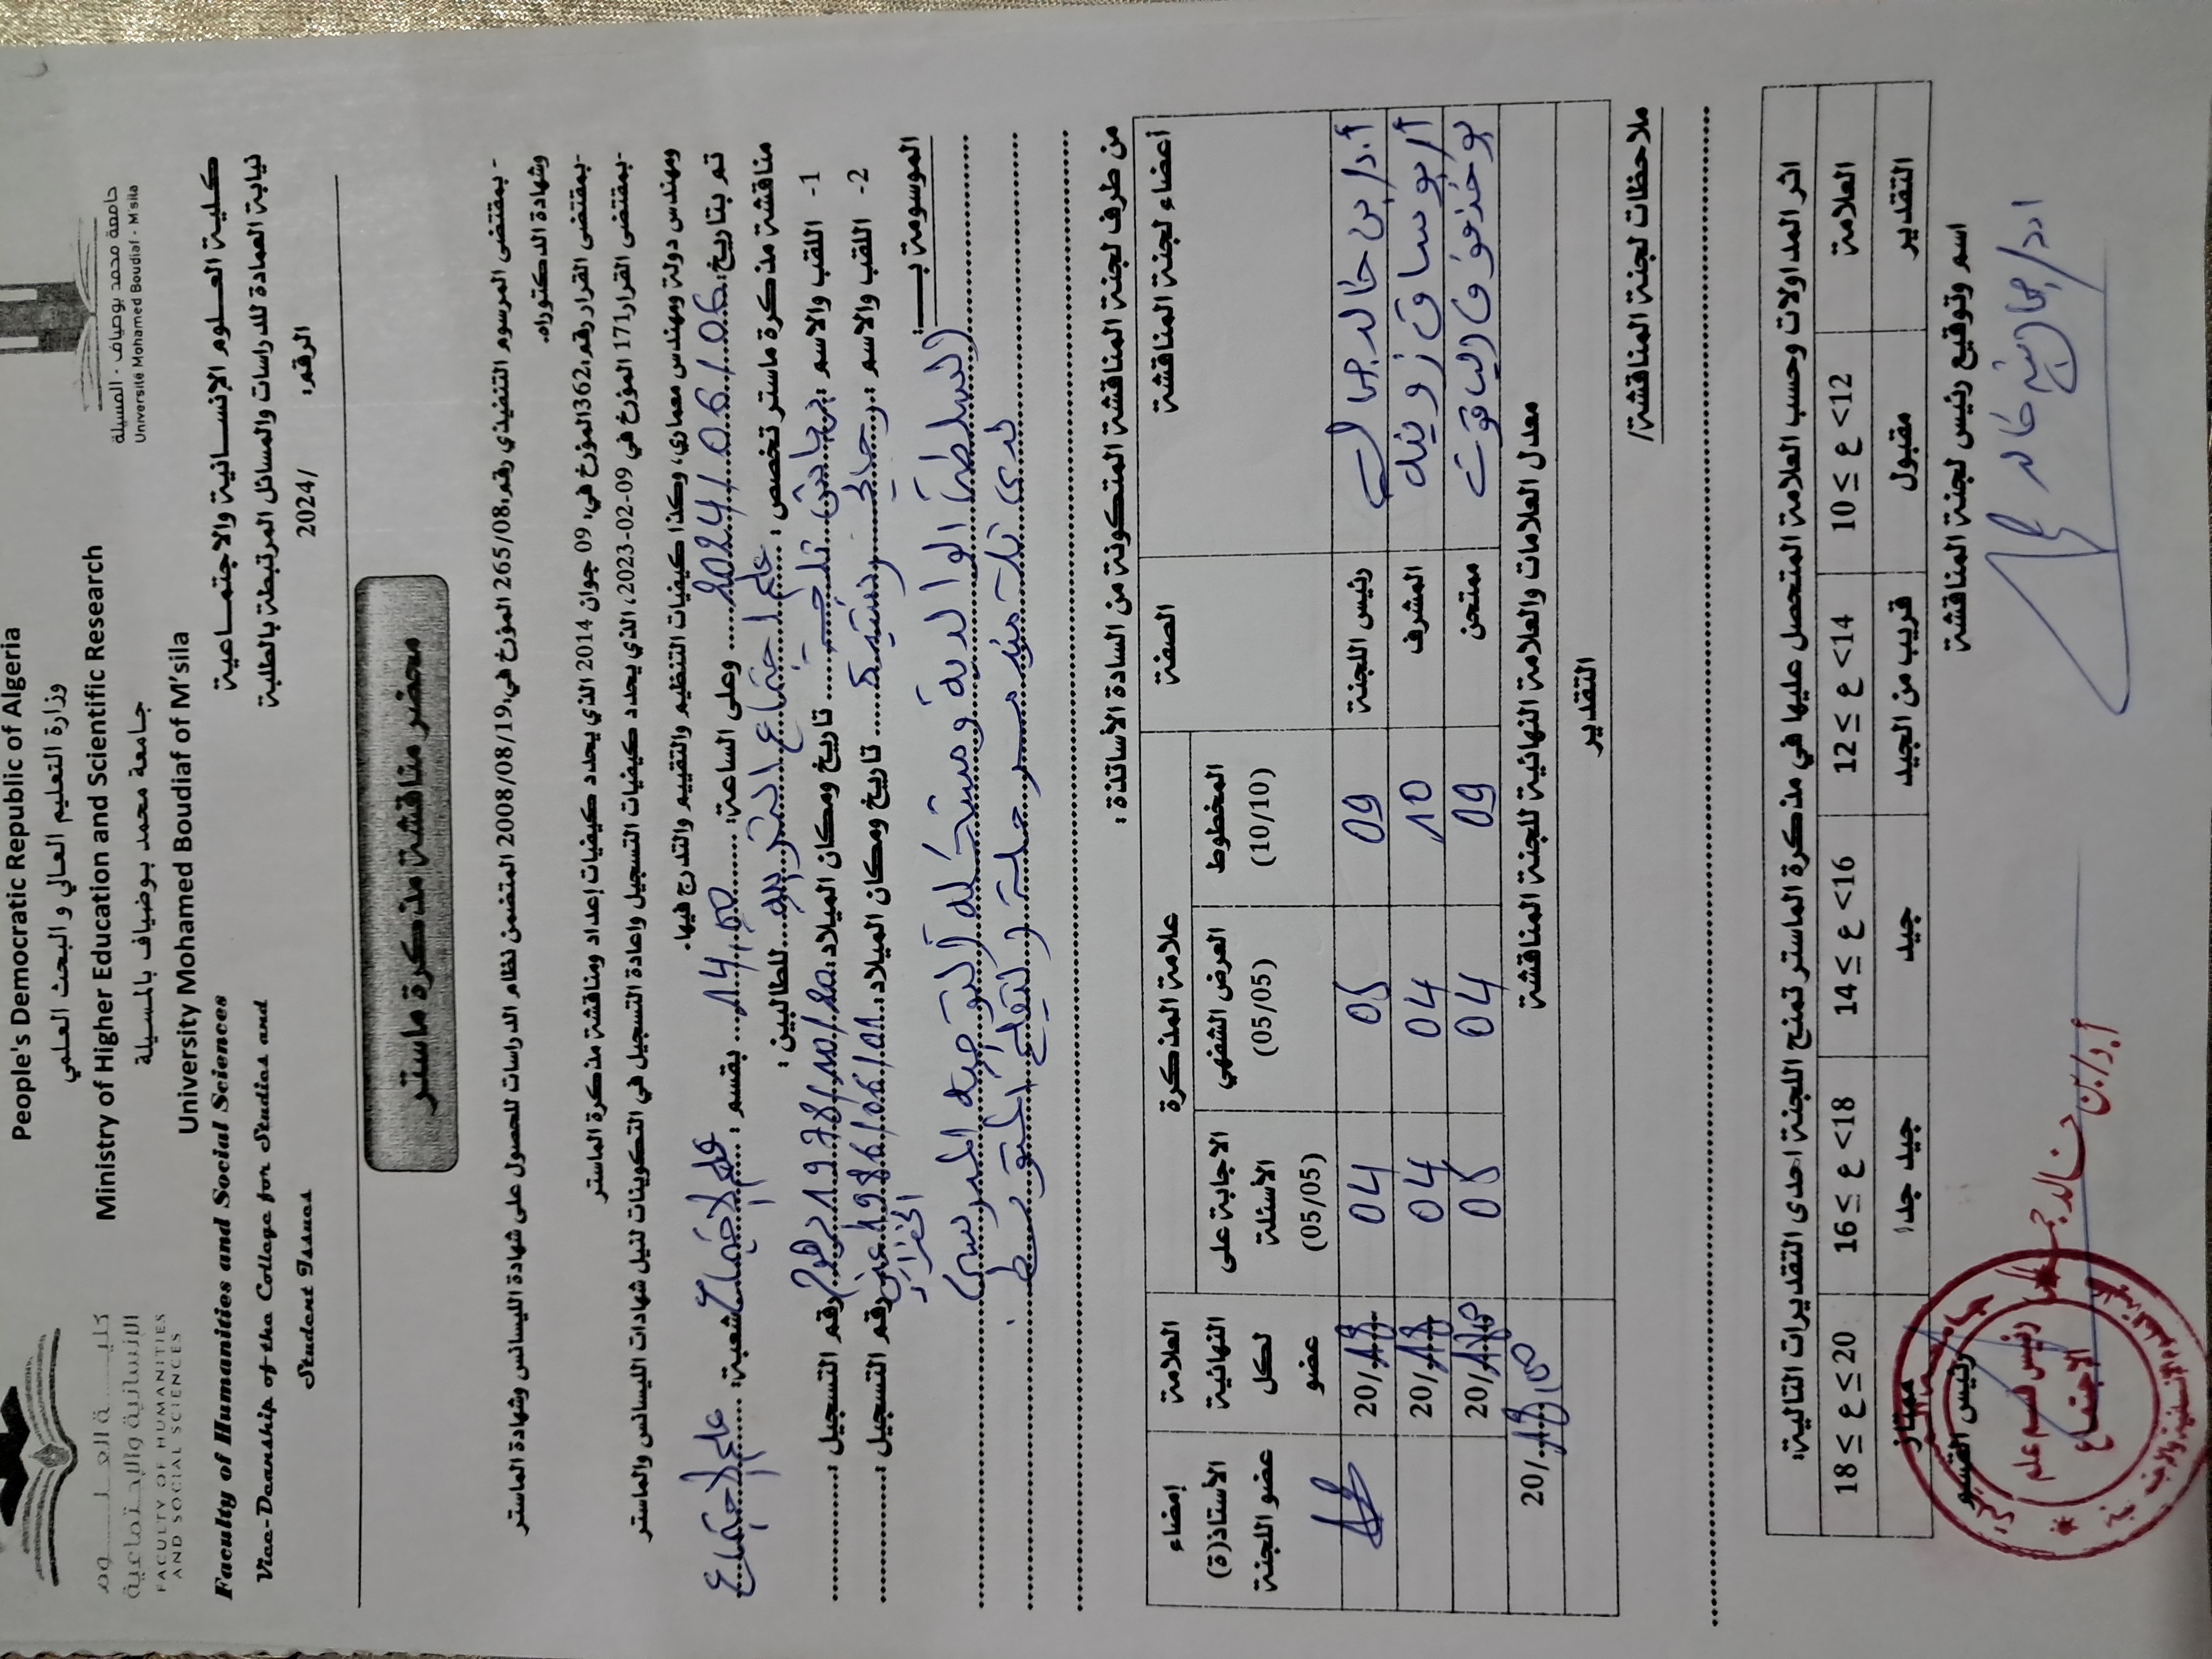 People's Democratic Republic of Algeria
وزارة التعليم العالي و البحث العلمي
Ministry of Higher Education and Scientific Research
جامعة محمد بوضياف بالمسيلة
University Mohamed Boudiaf of M'sila
جامعة محمد بوضياف - المسيلة
Université Mohamed Boudiaf - M'sila
كليـــة العلـــوم
الإنسانية والإجتماعية
FACULTY OF HUMANITIES
AND SOCIAL SCIENCES
Faculty of Humanities and Social Sciences
كلية العلوم الإنسانية والاجتماعية
Vice-Deanship of the College for Studies and
Student Issues
نيابة العمادة للدراسات والمسائل المرتبطة بالطلبة
الرقم: /2024
محضر مناقشة مذكرة ماستر
- بمقتضى المرسوم التنفيذي رقم 265/08 المؤرخ في 2008/08/19 المتضمن نظام الدراسات للحصول على شهادة الليسانس وشهادة الماستر
وشهادة الدكتوراه.
-بمقتضى القرار رقم 362 المؤرخ في: 09 جوان 2014 الذي يحدد كيفيات إعداد ومناقشة مذكرة الماستر
-بمقتضى القرار 171 المؤرخ في 09-02-2023، الذي يحدد كيفيات التسجيل وإعادة التسجيل في التكوينات لنيل شهادات الليسانس والماستر
ومهندس دولة ومهندس معماري، وكذا كيفيات التنظيم والتقييم والتدرج فيها.
تم بتاريخ: 2024/06/06 وعلى الساعة: 14:00 بقسم: علم الاجتماع شعبة: علم الاجتماع
مناقشة مذكرة ماستر تخصص: علم اجتماع التربية للطالبين:
1- اللقب والاسم: تاريخ ومكان الميلاد: 1978/10/20 رقم التسجيل:
2- اللقب والاسم: تاريخ ومكان الميلاد: 1986/06/01 رقم التسجيل:
الموسومة بـ:
السلطة الوالدية ومشكلة التوجيه المدرسي
لدى تلاميذ مرحلة التعليم المتوسط.
من طرف لجنة المناقشة المتكونة من السادة الأساتذة:
أعضاء لجنة المناقشة
الصفة
علامة المذكرة
المخطوط (10/10)
العرض الشفهي (05/05)
الاجابة على الأسئلة (05/05)
العلامة النهائية لكل عضو
إمضاء الأستاذ(ة) عضو اللجنة
أ.د/ بن خالد جمال رئيس اللجنة 09 05 04 20/18
أ/ بوساق زوينة المشرف 10 04 04 20/18
بوخذفوف الياقوت ممتحن 09 04 05 20/18
معدل العلامات والعلامة النهائية للجنة المناقشة 20/18,00
التقدير
ملاحظات لجنة المناقشة/
اثر المداولات وحسب العلامة المتحصل عليها في مذكرة الماستر تمنح اللجنة احدى التقديرات التالية:
العلامة 10 ≤ ع <12 12 ≤ ع <14 14 ≤ ع <16 16 ≤ ع <18 18 ≤ ع ≤ 20
التقدير مقبول قريب من الجيد جيد جيد جدا ممتاز
اسم وتوقيع رئيس لجنة المناقشة
رئيس القسم
أ.د/ بن خالد جمال
رئيس قسم علم
الاجتماع